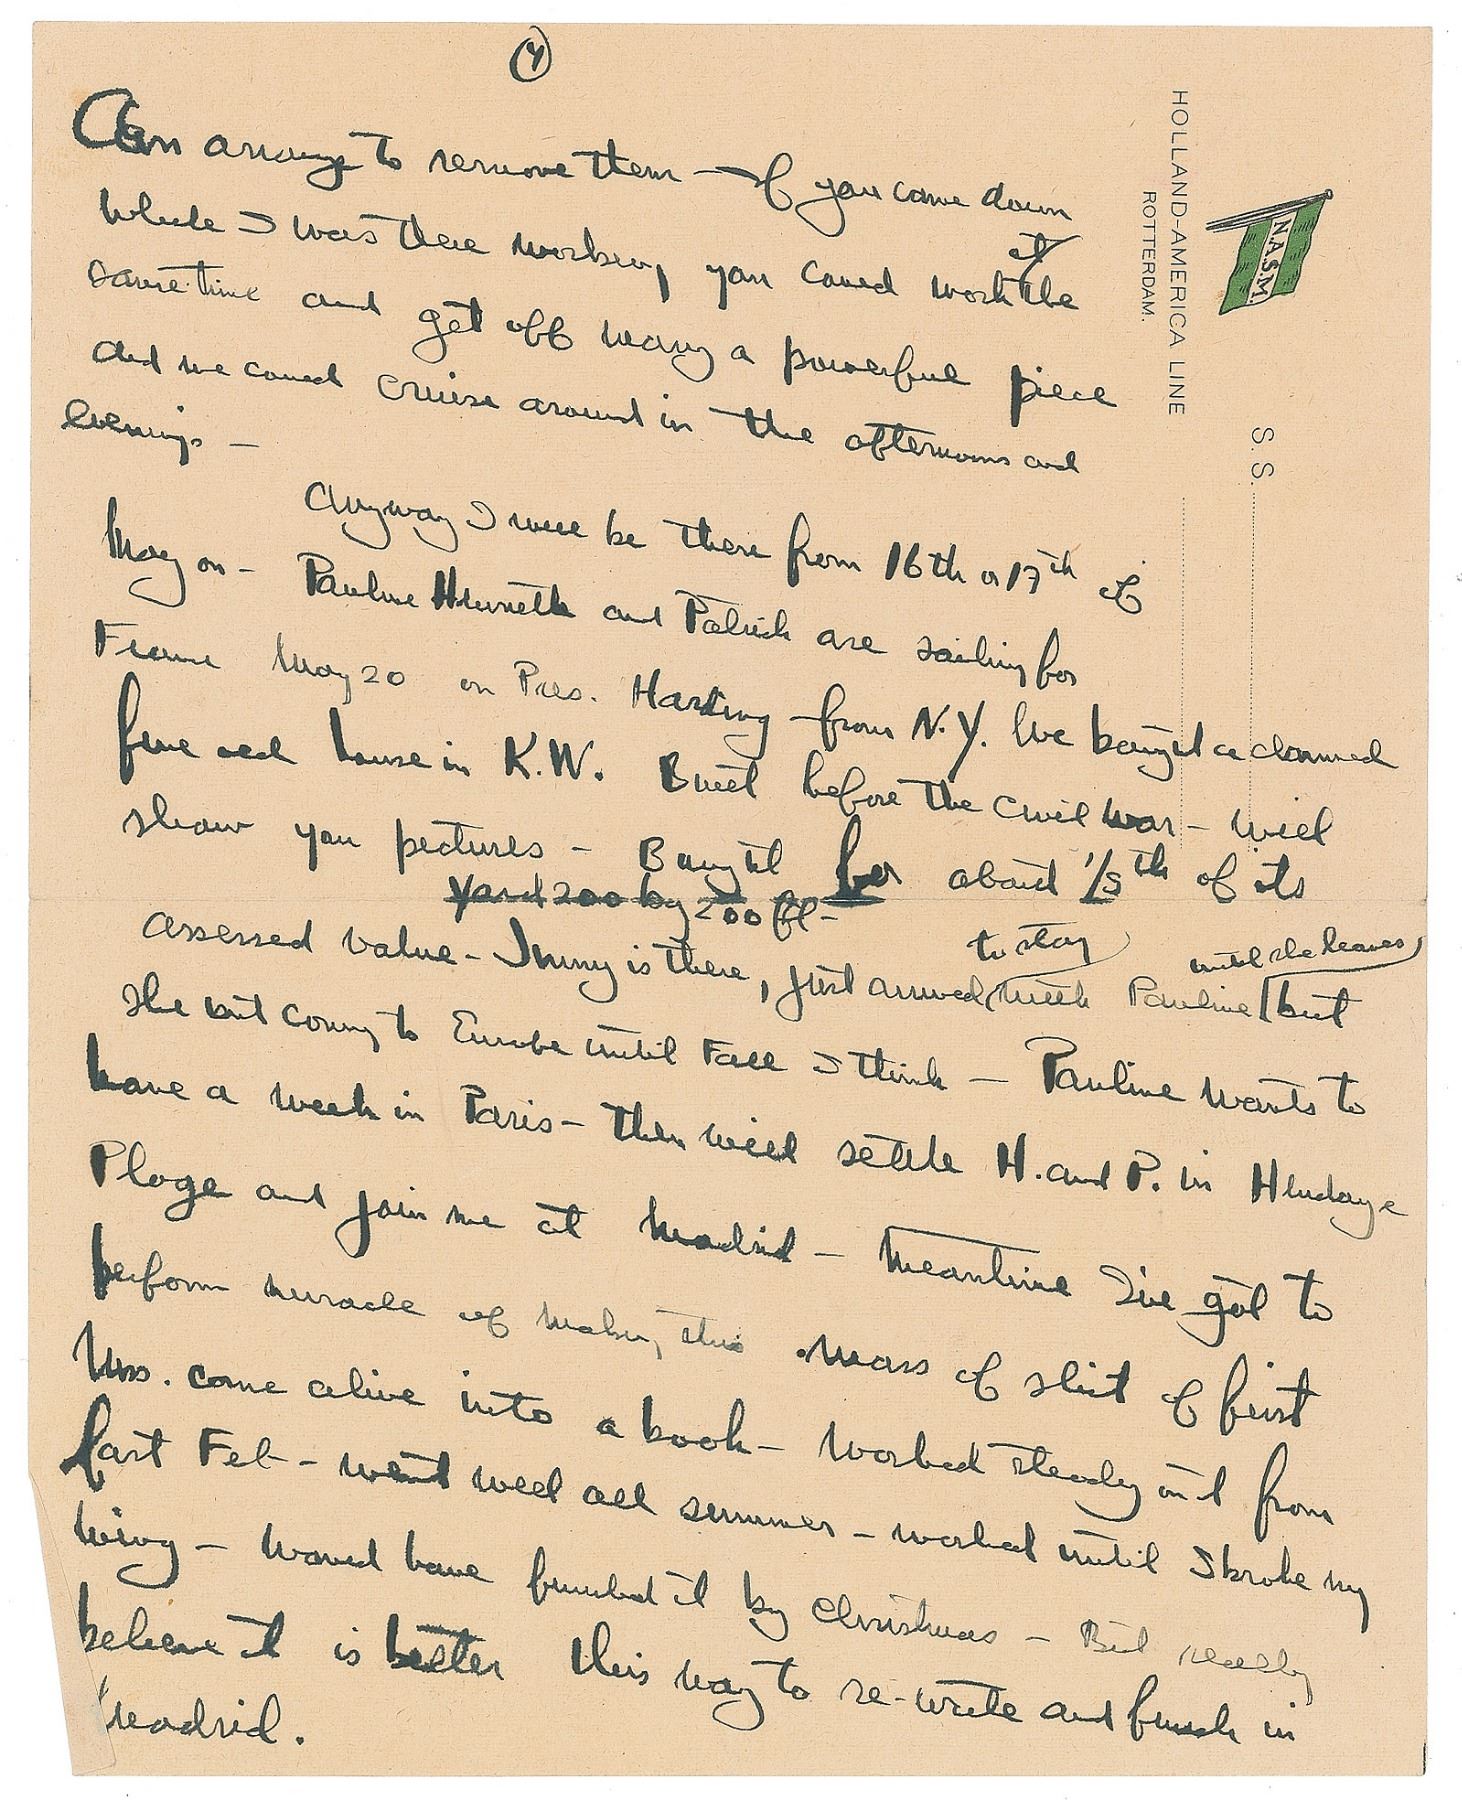 (4)
Can arrange to remove them — If you came down
while I was there working you could work at the
same time and get off many a powerful piece
and we could cruise around in the afternoons and
evenings —
Anyway I will be there from 16th or 17th of
May on — Pauline Henrietta and Patrick are sailing for
France May 20 on Pres. Harding — from N.Y. We bought a damned
fine old house in K.W. Built before the civil war — will
show you pictures — Bought for about 1/5th of its
Yard 200 by 200 ft —
assessed value — Jinny is there, just arrived to stay with Pauline until she leaves but
she not coming to Europe until Fall I think — Pauline wants to
have a week in Paris — then will settle H. and P. in Hendaye
Plage and join me at Madrid — Meantime I've got to
perform miracle of making this mass of shit of first
Mss. come alive into a book — Worked steady on it from
last Feb — went well all summer — worked until I broke my
wing — Would have finished it by Christmas — But really
believe it is better this way to re-write and finish in
Madrid.
HOLLAND-AMERICA LINE
ROTTERDAM.
N.A.S.M.
S.S.